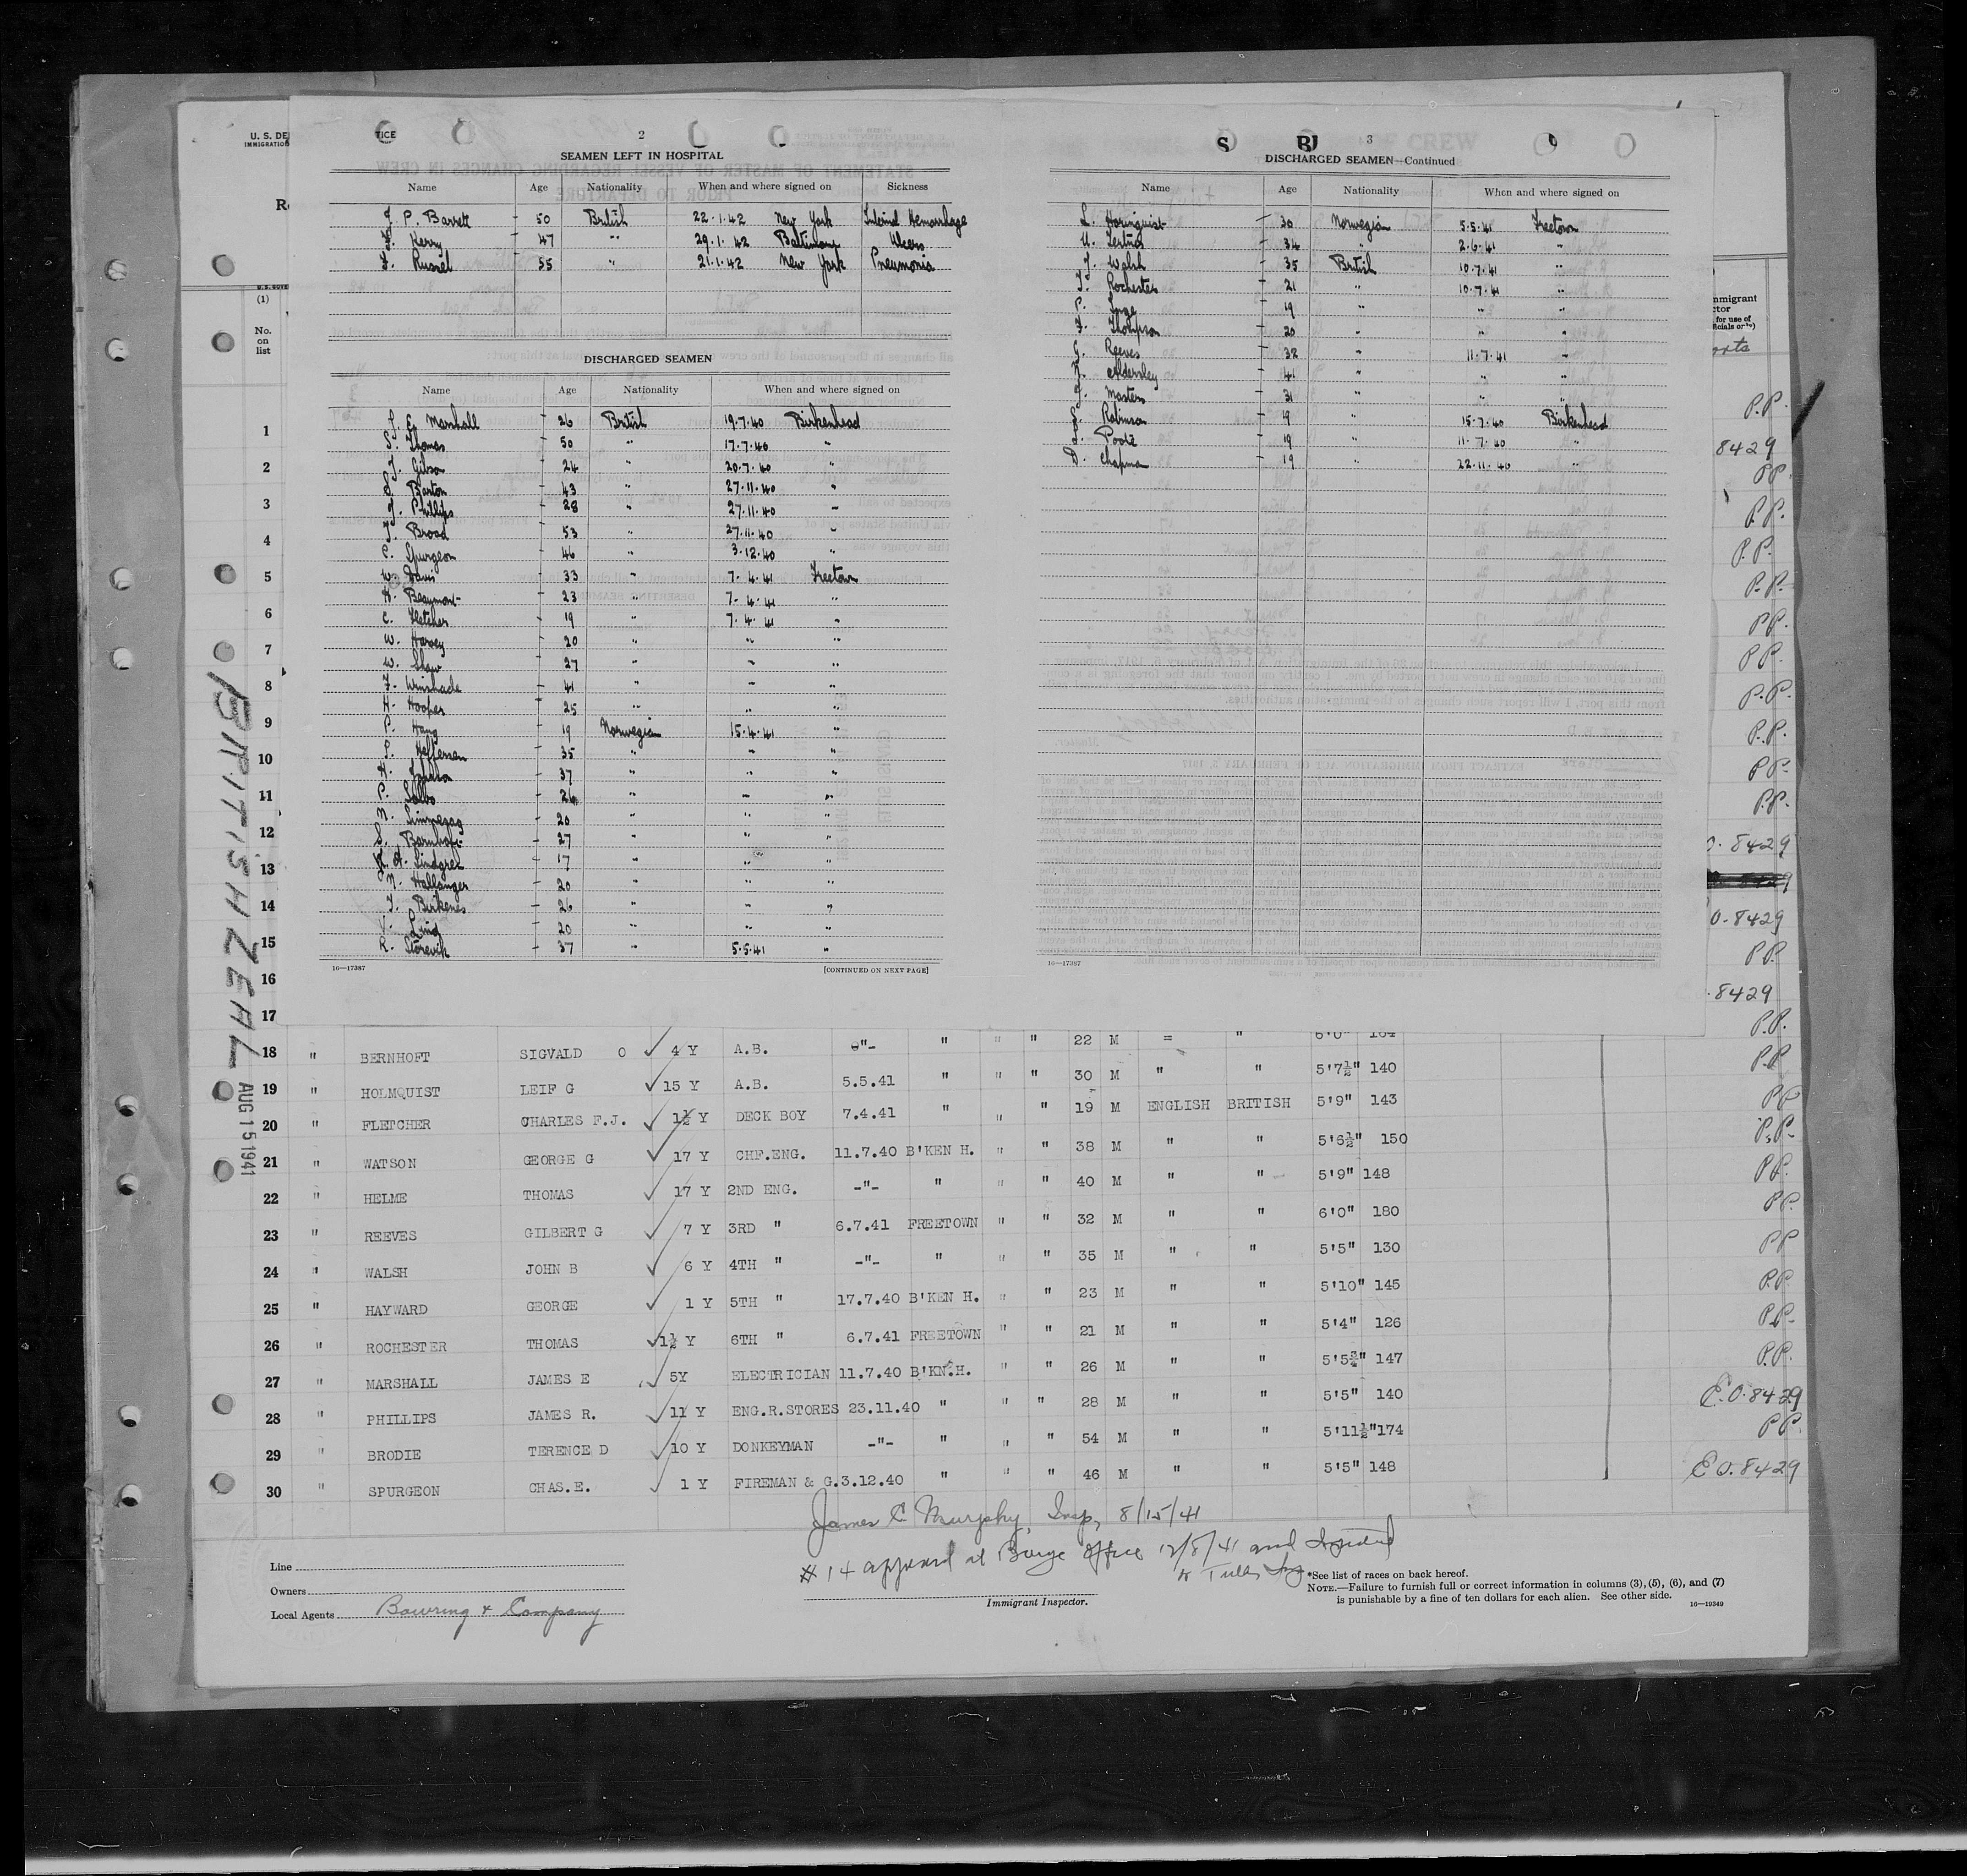 U. S. DE
TICE
IMMIGRATION
2
SEAMEN LEFT IN HOSPITAL
Name Age Nationality When and where signed on Sickness
J. P. Barrett - 50 British 22.1.42 New York Hemorrhage
Kerry - 47 " 29.1.42 Baltimore Ulcers
Russel - 55 " 21.1.42 New York Pneumonia
DISCHARGED SEAMEN
Name Age Nationality When and where signed on
J. E. Marshall - 26 British 19.7.40 Birkenhead
S. Thomas - 50 " 17.7.40 "
J. Gibson - 24 " 20.7.40 "
Barton - 43 " 27.11.40 "
J. Phillips - 28 " 27.11.40 "
T. Broad - 53 " 27.11.40 "
C. Spurgeon - 46 " 3.12.40 "
W. Davis - 33 " 7.4.41 Freetown
A. Beaumont - 23 " 7.4.41 "
C. Fletcher - 19 " 7.4.41 "
W. Harvey - 20 " " "
W. Shaw - 27 " " "
F. Winshade - 41 " " "
H. Hooper - 25 " " "
Haug - 19 Norwegian 15.4.41 "
Jeffersen - 35 " " "
Johnson - 37 " " "
Salbo - 26 " " "
E. - 20 " " "
S. Barnhoft - 27 " " "
A. Lindgren - 17 " " "
N. Hallanger - 20 " " "
J. Birkenes - 26 " " "
Lind - 20 " " "
R. Storevik - 37 " 5.5.41 "
16—17387 [CONTINUED ON NEXT PAGE]
S B 3
DISCHARGED SEAMEN—Continued
Name Age Nationality When and where signed on
L. Holmquist - 30 Norwegian 5.5.41 Freetown
- 34 " 2.6.41 "
J. Walsh - 35 British 10.7.41 "
T. Rochester - 21 " 10.7.41 "
- 19 " " "
Thompson - 20 " " "
G. Reeves - 32 " 11.7.41 "
Aldersley - 41 " " "
J. Masters - 31 " " "
Robinson - 19 " 15.7.40 Birkenhead
Poole - 19 " 11.7.40 "
D. Chapman - 19 " 22.11.40 "
16—17387
(1)
No. on list
mmigrant
ctor
for use of
ficials only)
1
2
3
4
5
6
7
8
9
10
11
12
13
14
15
16
17
P.P.
8429
PP.
P.P.
P.P.
P.P.
PP.
P.P.
P.P.
P.P.
P.P.
P.P.
O. 8429
O-8429
P.P.
8429
P.P.
BRITISH ZEAL
AUG 15 1941
18 " BERNHOFT SIGVALD O ✓ 4 Y A.B. -"- " " " 22 M = " 6'0" 164
19 " HOLMQUIST LEIF G ✓ 15 Y A.B. 5.5.41 " " " 30 M " " 5'7½" 140 P.P.
20 " FLETCHER CHARLES F.J. ✓ 1½ Y DECK BOY 7.4.41 " " " 19 M ENGLISH BRITISH 5'9" 143 P.P.
21 " WATSON GEORGE G ✓ 17 Y CHF.ENG. 11.7.40 B'KEN H. " " 38 M " " 5'6½" 150 P.P.
22 " HELME THOMAS ✓ 17 Y 2ND ENG. -"- " " " 40 M " " 5'9" 148 P.P.
23 " REEVES GILBERT G ✓ 7 Y 3RD " 6.7.41 FREETOWN " " 32 M " " 6'0" 180 P.P.
24 " WALSH JOHN B ✓ 6 Y 4TH " -"- " " " 35 M " " 5'5" 130 P.P.
25 " HAYWARD GEORGE ✓ 1 Y 5TH " 17.7.40 B'KEN H. " " 23 M " " 5'10" 145 P.P.
26 " ROCHESTER THOMAS ✓ 1½ Y 6TH " 6.7.41 FREETOWN " " 21 M " " 5'4" 126 P.P.
27 " MARSHALL JAMES E ✓ 5Y ELECTRICIAN 11.7.40 B'KN.H. " " 26 M " " 5'5¾" 147 P.P.
28 " PHILLIPS JAMES R. ✓ 11 Y ENG.R.STORES 23.11.40 " " " 28 M " " 5'5" 140 E.O. 8429
29 " BRODIE TERENCE D ✓ 10 Y DONKEYMAN -"- " " " 54 M " " 5'11½" 174 P.P.
30 " SPURGEON CHAS.E. ✓ 1 Y FIREMAN & G. 3.12.40 " " " 46 M " " 5'5" 148 E O. 8429
James C. Murphy, Insp, 8/15/41
#14 appeared at Barge Office 12/8/41 and
Line
Owners
Local Agents Bowring & Company
Immigrant Inspector.
*See list of races on back hereof.
NOTE.—Failure to furnish full or correct information in columns (3), (5), (6), and (7)
is punishable by a fine of ten dollars for each alien. See other side.
16—19349